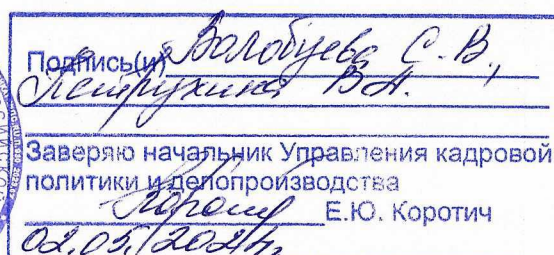 Подпись(и) Волобуева С.В.,
Петрухина В.А.
Заверяю начальник Управления кадровой
политики и делопроизводства
Е.Ю. Коротич
02.05.2024г.